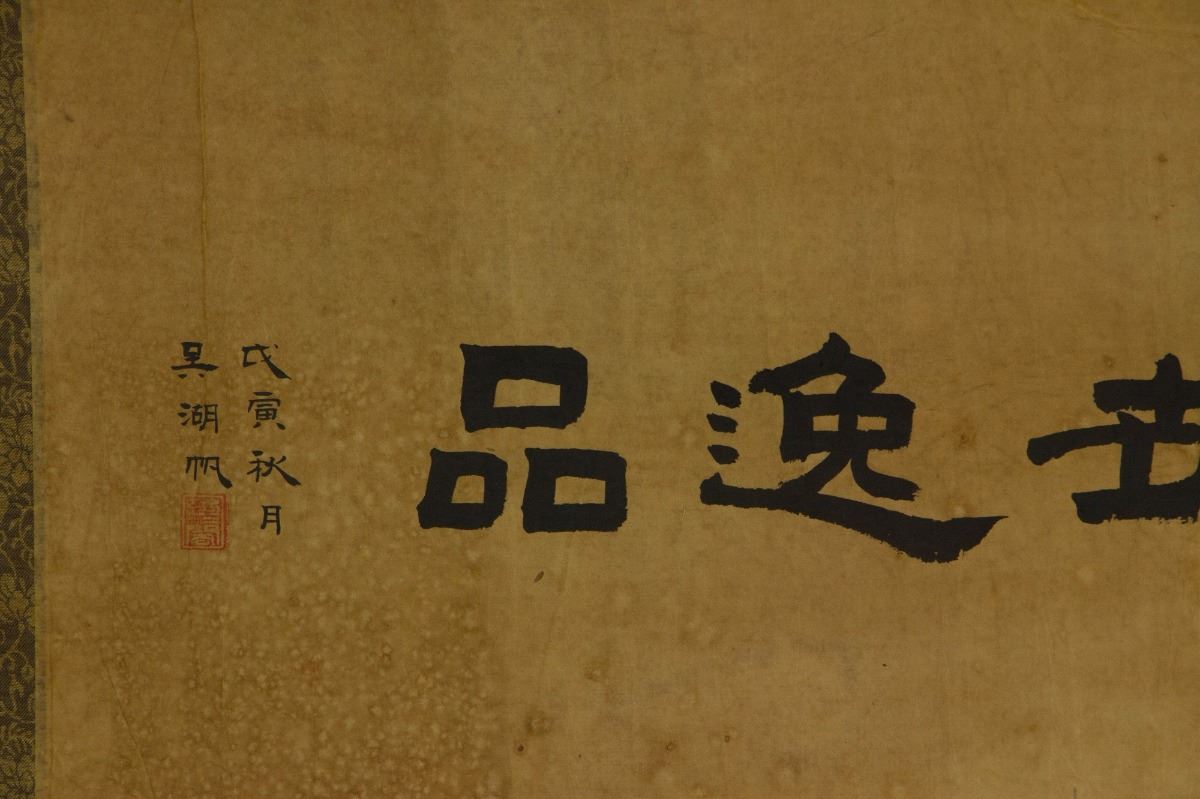 世逸品
戊寅秋月
吴湖帆